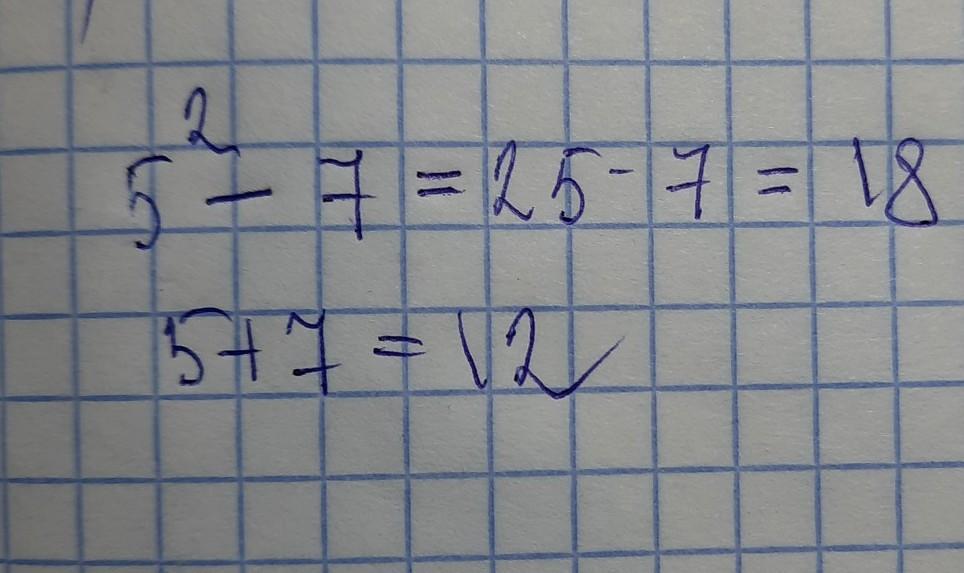 5² - 7 = 25 - 7 = 18
5 + 7 = 12